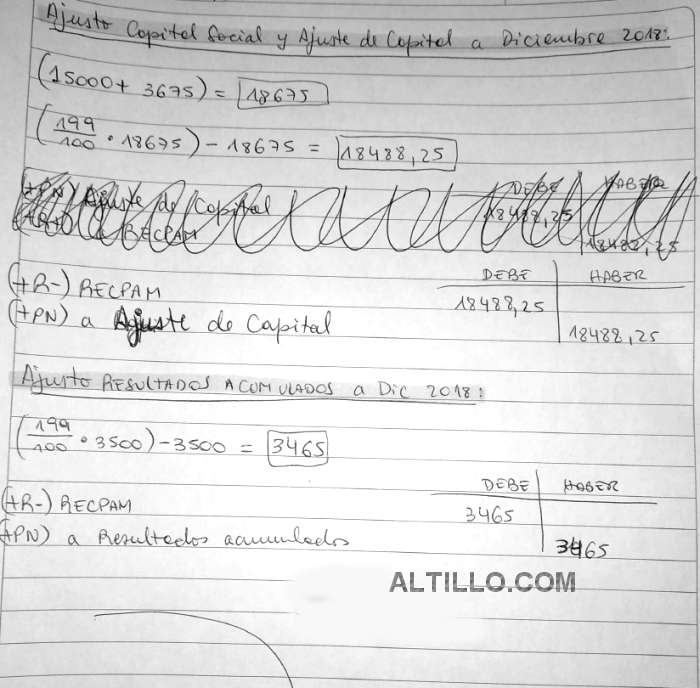 Ajusto Capital Social y Ajuste de Capital a Diciembre 2018:
(15000 + 3675) = 18675
(199/100 · 18675) - 18675 = 18488,25
(+PN) Ajuste de Capital DEBE HABER
a RECPAM 18488,25 18488,25
DEBE HABER
(+R-) RECPAM 18488,25
(+PN) a Ajuste de Capital 18488,25
Ajusto RESULTADOS ACUMULADOS a Dic 2018:
(199/100 · 3500) - 3500 = 3465
DEBE HABER
(+R-) RECPAM 3465
(+PN) a Resultados acumulados 3465
ALTILLO.COM